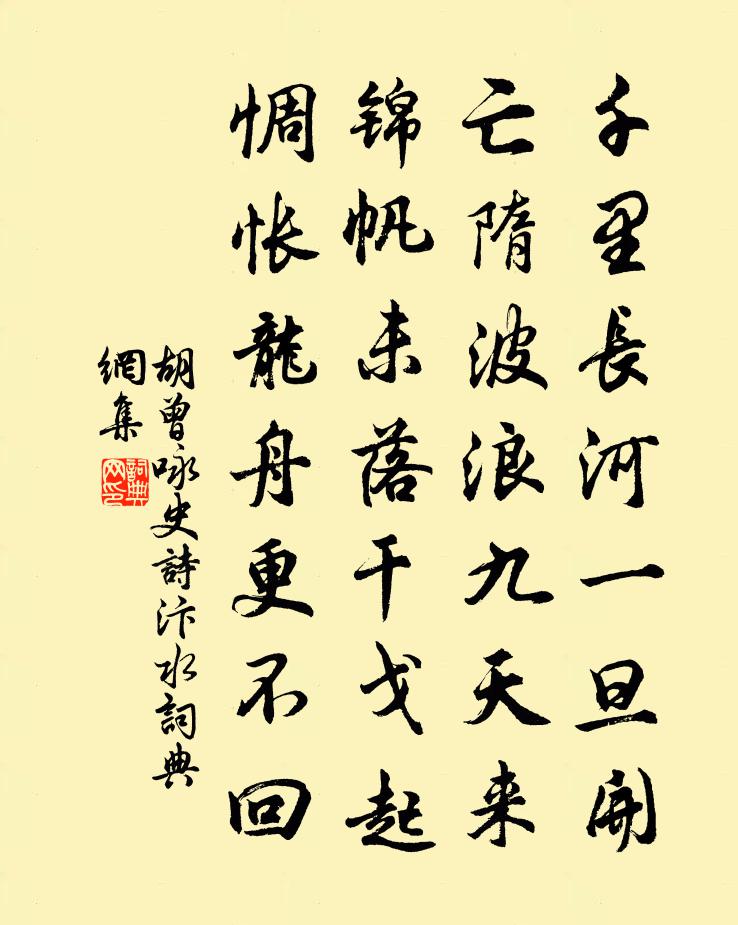 千里長河一旦開
亡隋波浪九天来
錦帆未落干戈起
惆悵龍舟更不回
胡曾咏史詩汴水詞典
網集
詞典網印